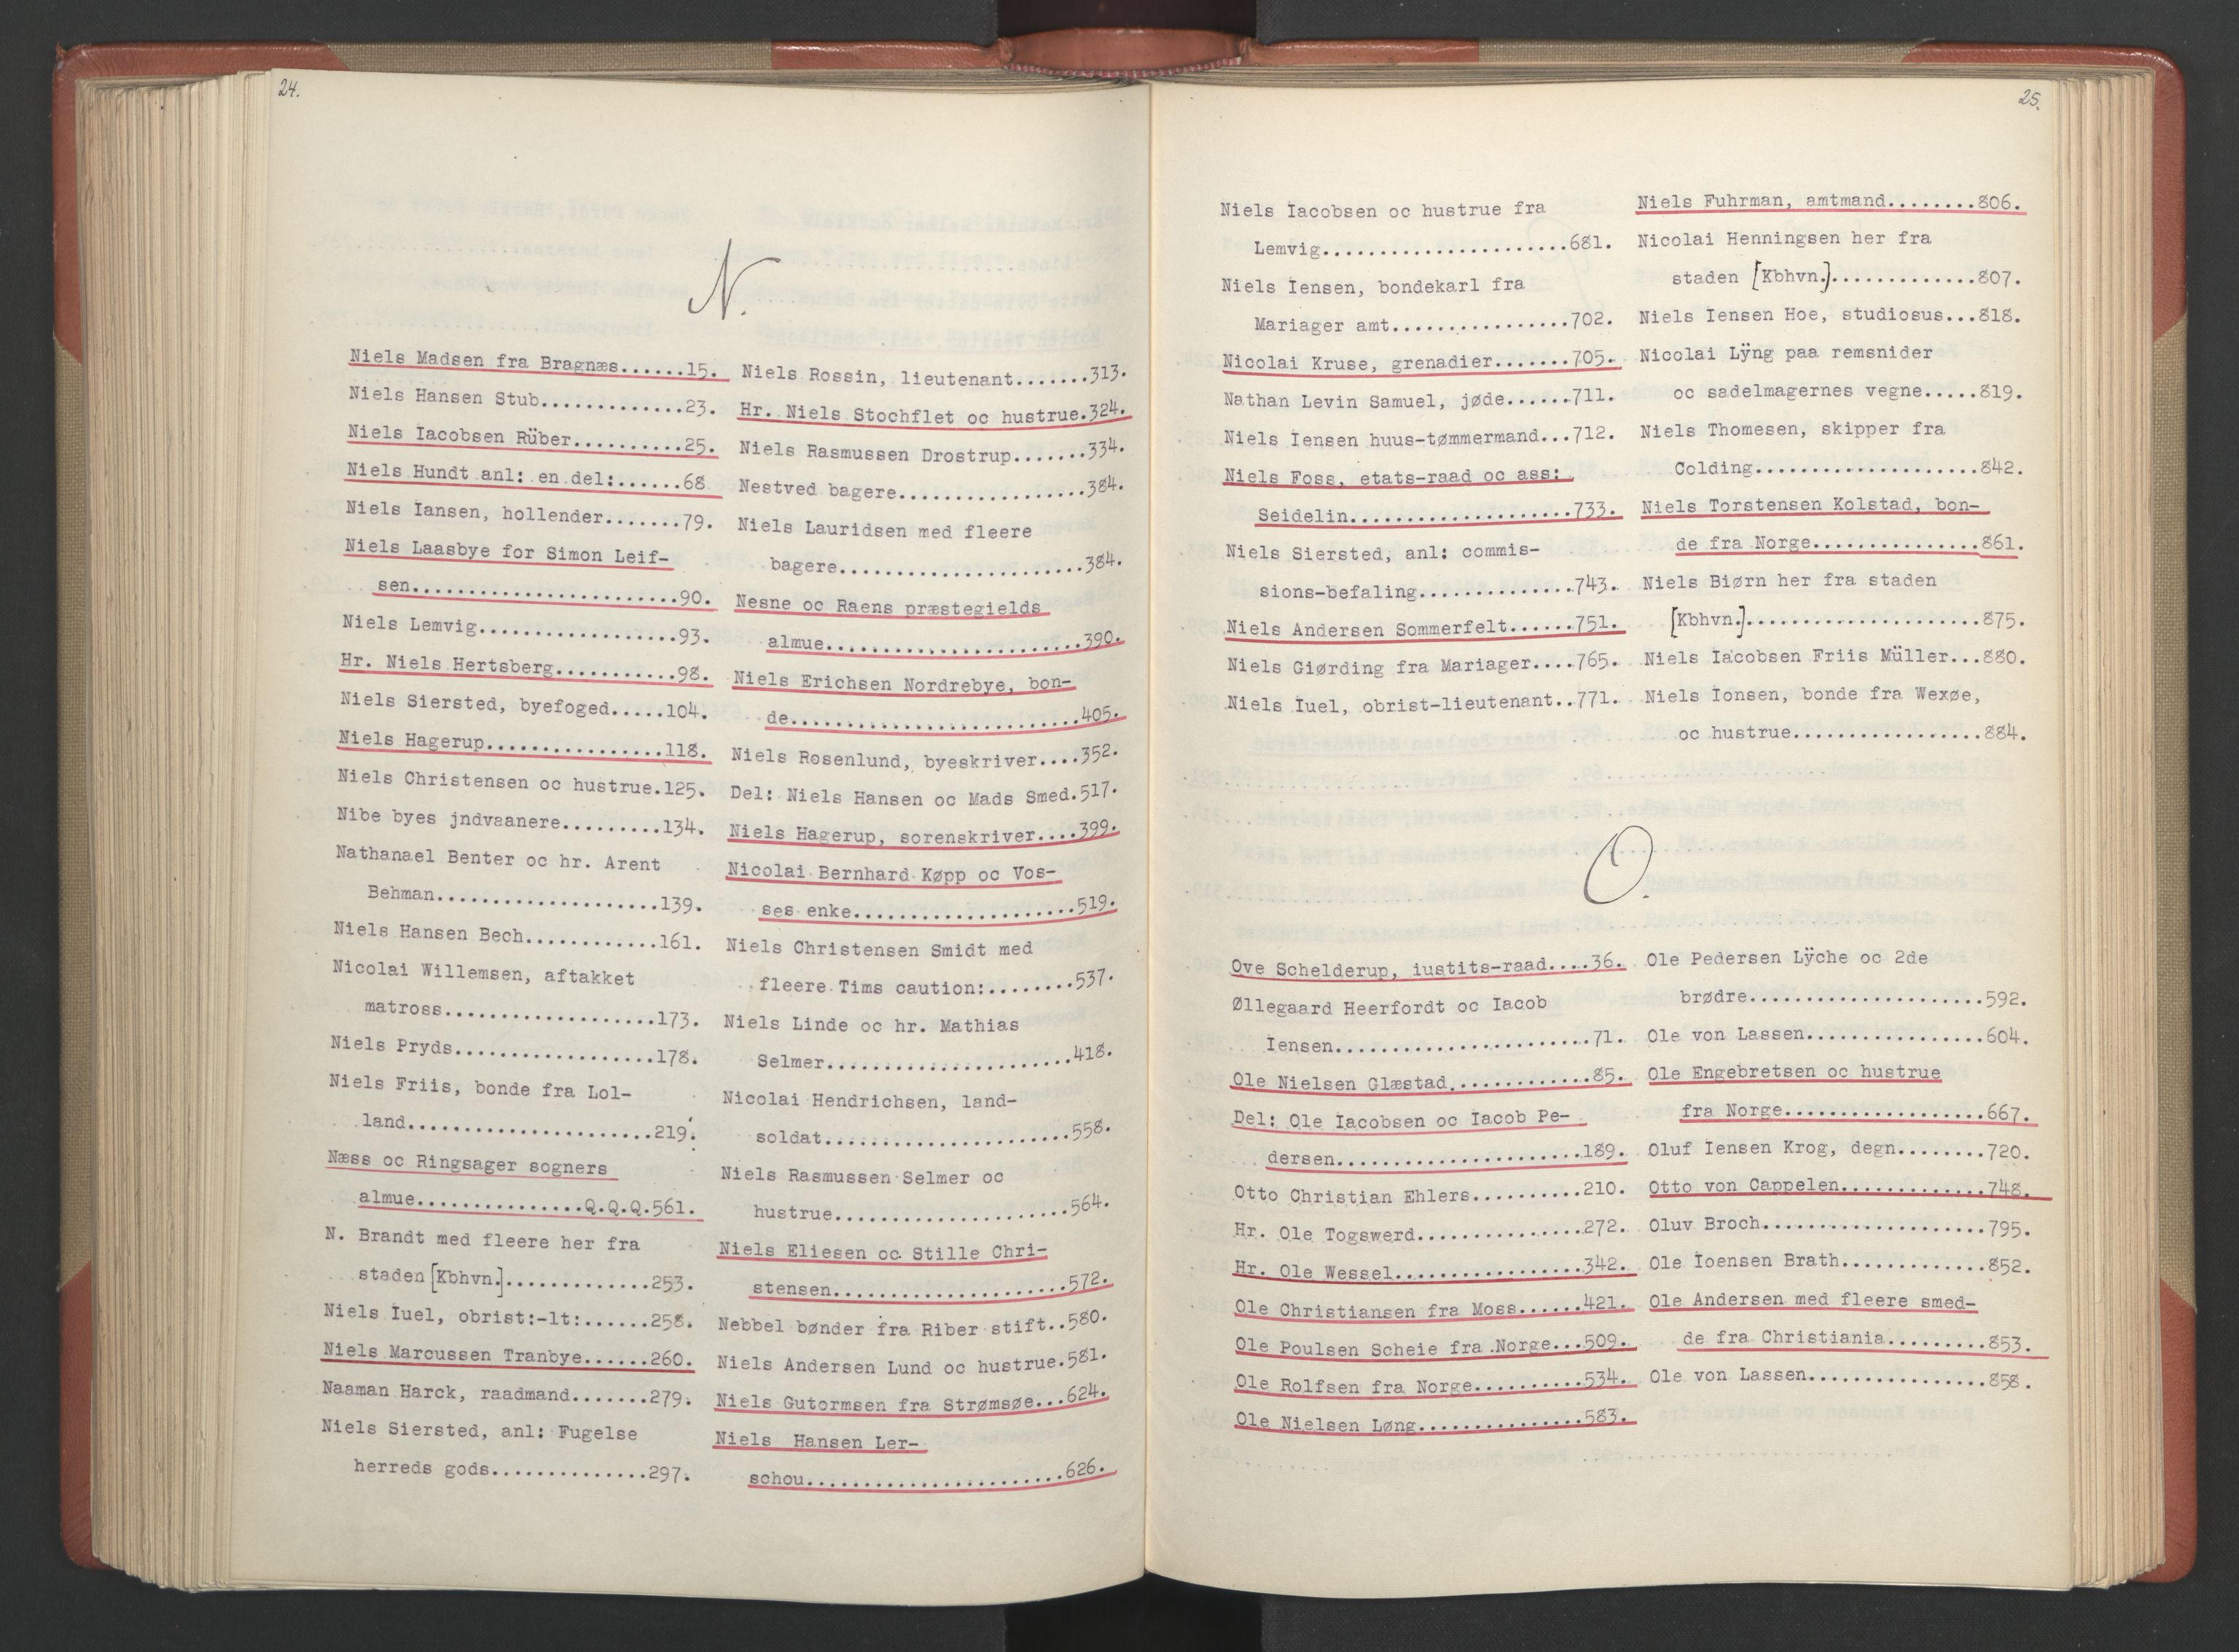 24.
N.
Niels Madsen fra Bragnæs......15.
Niels Hansen Stub.............23.
Niels Iacobsen Rüber..........25.
Niels Hundt anl: en del:......68.
Niels Iansen, hollender.......79.
Niels Laasbye for Simon Leif-
sen........................90.
Niels Lemvig..................93.
Hr. Niels Hertsberg...........98.
Niels Siersted, byefoged.....104.
Niels Hagerup................118.
Niels Christensen oc hustrue.125.
Nibe byes jndvaanere.........134.
Nathanael Benter oc hr. Arent
Behman....................139.
Niels Hansen Bech............161.
Nicolai Willemsen, aftakket
matross...................173.
Niels Pryds..................178.
Niels Friis, bonde fra Lol-
land......................219.
Næss oc Ringsager sogners
almue...............Q.Q.Q.561.
N. Brandt med fleere her fra
staden [Kbhvn.].............253.
Niels Iuel, obrist:-lt:......258.
Niels Marcussen Tranbye......260.
Naaman Harck, raadmand.......279.
Niels Siersted, anl: Fugelse
herreds gods..............297.
Niels Rossin, lieutenant.......313.
Hr. Niels Stochflet oc hustrue.324.
Niels Rasmussen Drostrup.......334.
Nestved bagere.................384.
Niels Lauridsen med fleere
bagere......................384.
Nesne oc Raens præstegields
almue.......................390.
Niels Erichsen Nordrebye, bon-
de..........................405.
Niels Rosenlund, byeskriver....352.
Del: Niels Hansen oc Mads Smed.517.
Niels Hagerup, sorenskriver....399.
Nicolai Bernhard Køpp oc Vos-
ses enke....................519.
Niels Christensen Smidt med
fleere Tims caution:........537.
Niels Linde oc hr. Mathias
Selmer......................418.
Nicolai Hendrichsen, land-
soldat......................558.
Niels Rasmussen Selmer oc
hustrue.....................564.
Niels Eliesen oc Stille Chri-
stensen.....................572.
Nebbel bønder fra Riber stift..580.
Niels Andersen Lund oc hustrue.581.
Niels Gutormsen fra Strømsøe...624.
Niels Hansen Ler-
schou.......................626.
25.
Niels Iacobsen oc hustrue fra
Lemvig......................681.
Niels Iensen, bondekarl fra
Mariager amt................702.
Nicolai Kruse, grenadier.......705.
Nathan Levin Samuel, jøde......711.
Niels Iensen huus-tømmermand...712.
Niels Foss, etats-raad oc ass:
Seidelin....................733.
Niels Siersted, anl: commis-
sions-befaling..............743.
Niels Andersen Sommerfelt......751.
Niels Giørding fra Mariager....765.
Niels Iuel, obrist-lieutenant..771.
Niels Fuhrman, amtmand........806.
Nicolai Henningsen her fra
staden [Kbhvn.].............807.
Niels Iensen Hoe, studiosus...818.
Nicolai Lÿng paa remsnider
oc sadelmagernes vegne.....819.
Niels Thomesen, skipper fra
Colding....................842.
Niels Torstensen Kolstad, bon-
de fra Norge...............861.
Niels Biørn her fra staden
[Kbhvn.].....................875.
Niels Iacobsen Friis Müller...880.
Niels Ionsen, bonde fra Wexøe,
oc hustrue.................884.
O.
Ove Schelderup, iustits-raad....36.
Øllegaard Heerfordt oc Iacob
Iensen.......................71.
Ole Nielsen Glæstad.............85.
Del: Ole Iacobsen oc Iacob Pe-
dersen......................189.
Otto Christian Ehlers..........210.
Hr. Ole Togswerd...............272.
Hr. Ole Wessel.................342.
Ole Christiansen fra Moss......421.
Ole Poulsen Scheie fra Norge...509.
Ole Rolfsen fra Norge..........534.
Ole Nielsen Løng...............583.
Ole Pedersen Lÿche oc 2de
brødre.....................592.
Ole von Lassen................604.
Ole Engebretsen oc hustrue
fra Norge..................667.
Oluf Iensen Krog, degn........720.
Otto von Cappelen.............748.
Oluv Broch....................795.
Ole Ioensen Brath.............852.
Ole Andersen med fleere smed-
de fra Christiania.........853.
Ole von Lassen................858.